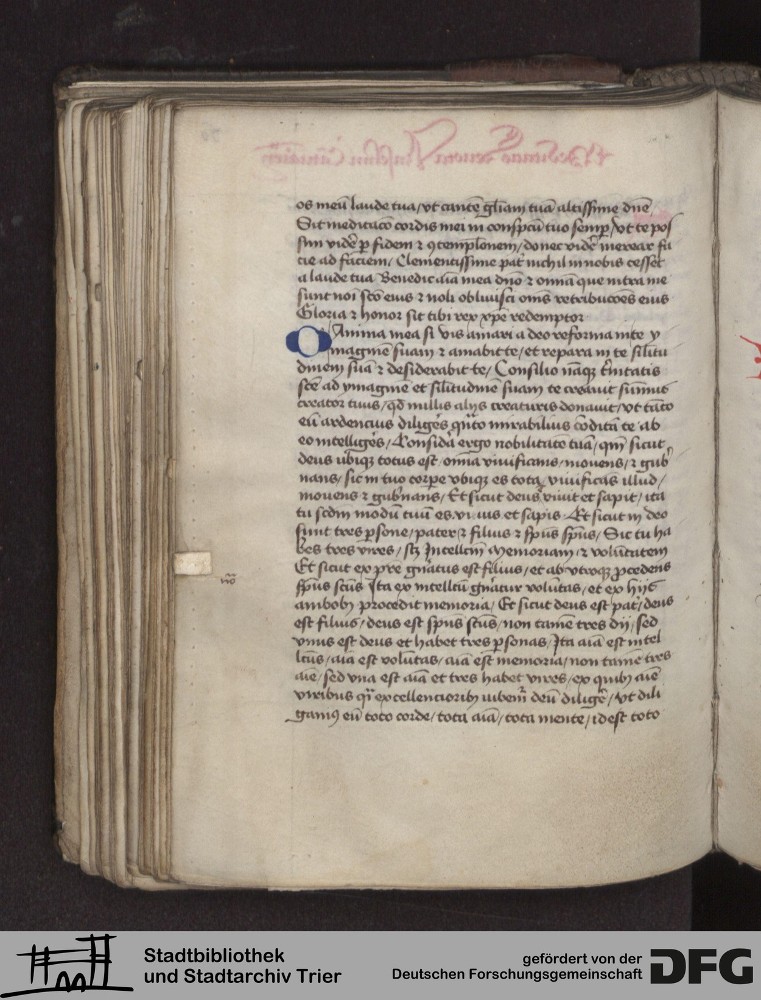 os meū laude tua / vt cantē gl̄iam tuā altissime dn̄e
Sit meditacō cordis mei in conspc̄u tuo semp̱ / vt te pos
sim vidēr p̱ fidem ⁊ ꝯtemplōnem / donec vidēr merear fa
cie ad faciem / Clementissime pat̄ nichil in nobis cesset
a laude tua Benedic aīa mea dn̄o ⁊ om̄ia que intra me
sunt noī scō eius ⁊ noli obliuisci om̄s retribucōes eius
Gloria ⁊ honor sit tibi rex xp̄e redemptor
O Anima mea si vis amari a deo reforma in te y
maginē suam ⁊ amabit te / et repara in te sil̄itu
dinem suā ⁊ desiderabit te / Consilio nāqꝫ t̄nitatis
sc̄e ad ymaginē et sil̄itudinē suam te creauit summus
creator tuus / qd̄ nullis alijs creaturis donauit / vt tāto
eū ardencius diligēs qūto mirabilius cōditā te ab
eo intelligēs / Considā ergo nobilitatē tuā / qm̄ sicut
deus vbiqꝫ totus est om̄ia viuificans / mouens / ⁊ gub̄
nans / sic in tuo corpe vbiqꝫ es tota viuificās illud /
mouens ⁊ gub̄nans / Et sicut deus viuit et sapit / ita
tu scdm̄ modū tuū es viuis et sapis Et sicut in deo
sunt tres p̱sone / pater ⁊ filius ⁊ sp̄us sc̄us / Sic tu ha
bes tres vires / sꝫ Intellc̄m memoriam ⁊ voluntatem
Et sicut ex pr̄e gn̄atus est filius / et ab vtroqꝫ ꝓcedens
sp̄us sc̄us Ita ex intellc̄u gn̄atur voluntas / et ex hijs
ambobꝫ procedit memoria / Et sicut deus est pat̄ / deus
est filius / deus est sp̄us sc̄us / non tamē tres dij / sed
vnus est deus et habet tres p̱sonas / Ita aīa est intel
lc̄us / aīa est voluntas / aīa est memoria / non tamē tres
aīe / sed vna est aīa et tres habet vires / ex quibꝫ aīe
viribus qī excellencioribꝫ iubem̄ deū diligē / vt dili
gamꝰ eū toto corde / tota aīa / tota mente / id est toto
Stadtbibliothek
und Stadtarchiv Trier
gefördert von der
Deutschen Forschungsgemeinschaft
DFG